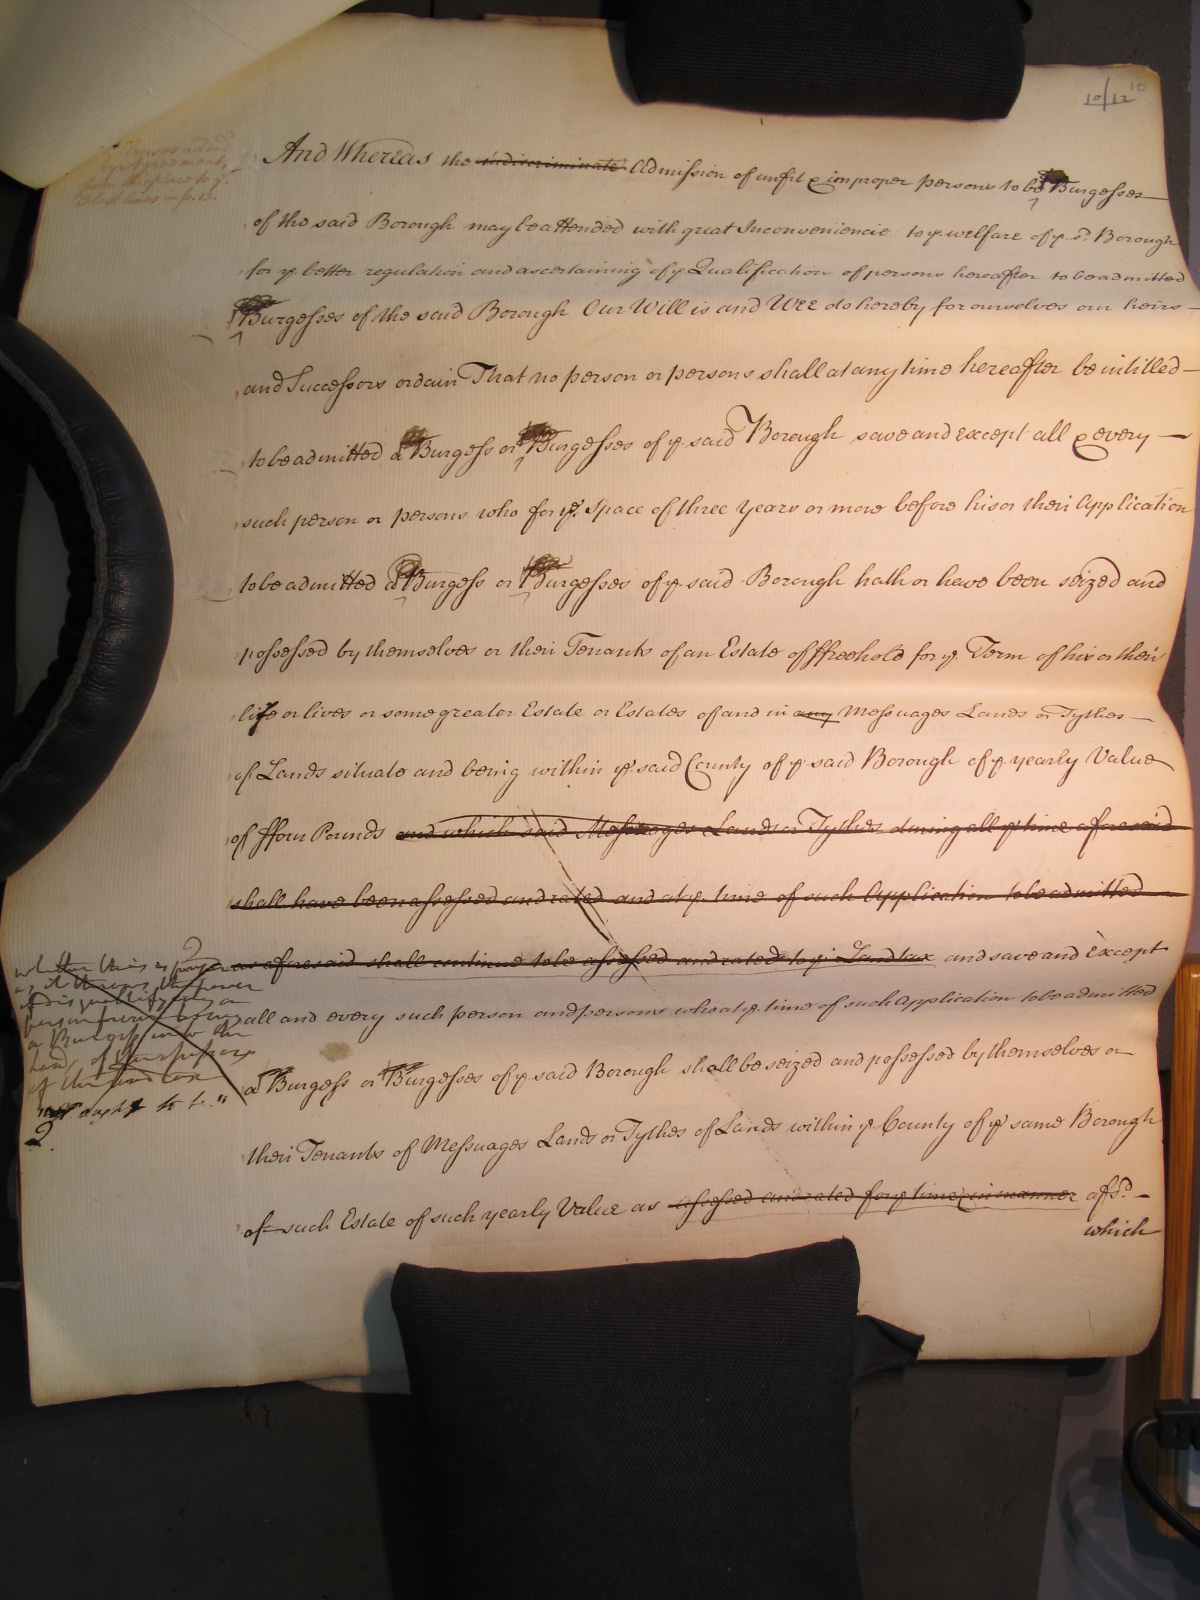 10/12
10
Clause added
by Agreement
from this place to ye
And Whereas the indiscriminate Admission of unfit & improper persons to be Burgesses
of the said Borough may be attended with great Inconveniencie to ye welfare of ye sd. Borough
for ye better regulation and ascertaining of ye Qualification of persons hereafter to be admitted
Burgesses of the said Borough Our Will is and Wee do hereby for ourselves our heirs
and Successors ordain That no person or persons shall at any time hereafter be intitled
to be admitted a Burgess or Burgesses of ye said Borough save and except all & every
such person or persons who for ye. Space of three Years or more before his or their Application
to be admitted a Burgess or Burgesses of ye said Borough hath or have been seized and
possessed by themselves or their Tenants of an Estate of ffreehold for ye Term of his or their
life or lives or some greater Estate or Estates of and in any Messuages Lands or Tythes
of Lands situate and being within ye said County of ye said Borough of ye yearly Value
of ffour Pounds and which said Messuages Lands or Tythes during all ye time aforesaid
shall have been assessed and rated and at ye time of such Application to be admitted
as aforesaid shall continue to be assessed and rated to ye Land tax and save and Except
all and every such person and persons who at ye time of such Application to be admitted
a Burgess or Burgesses of ye said Borough shall be seized and possessed by themselves or
their Tenants of Messuages Lands or Tythes of Lands within ye County of ye same Borough
of such Estate of such yearly Value as assessed and rated for ye time & in manner afsd.
which
whether this is proper
as it throws the power
of disqualifying a
person from being
a Burgess into the
hands of
of the land tax
ought to be"